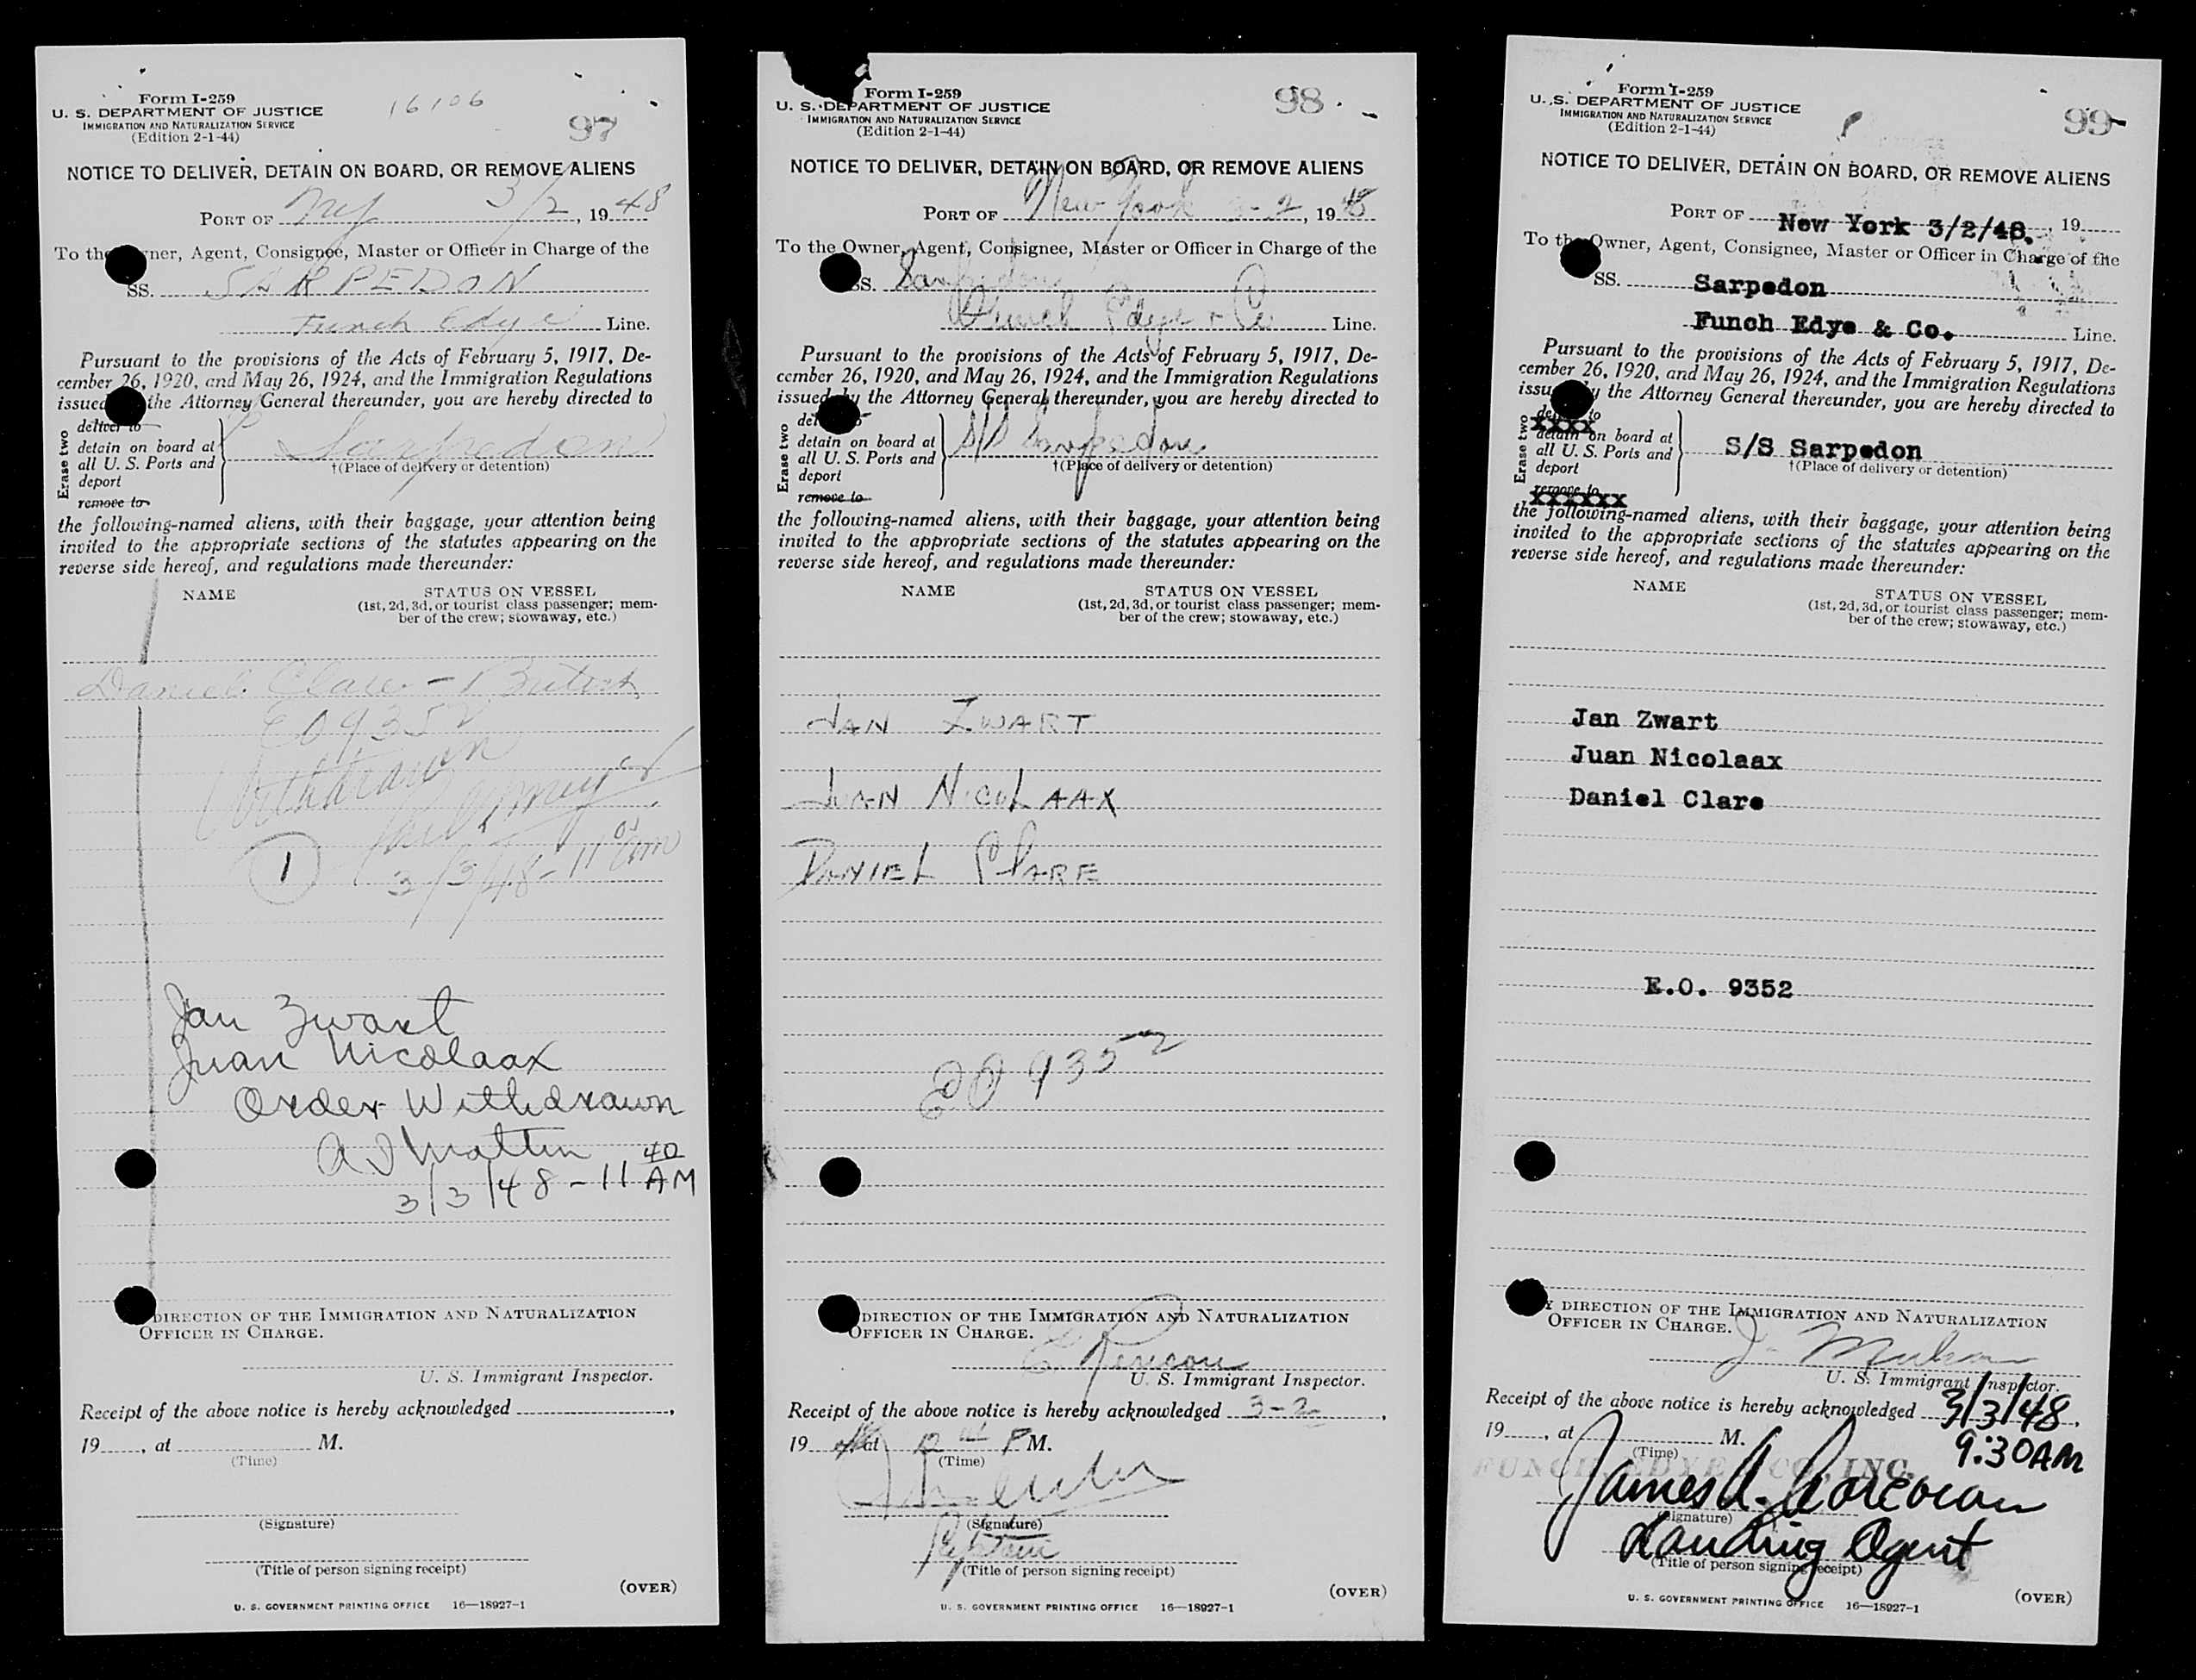 Form I-259
U. S. DEPARTMENT OF JUSTICE
IMMIGRATION AND NATURALIZATION SERVICE
(Edition 2-1-44)
16106
97
NOTICE TO DELIVER, DETAIN ON BOARD, OR REMOVE ALIENS
PORT OF NY 3/2, 1948
To the Owner, Agent, Consignee, Master or Officer in Charge of the
SS. SARPEDON
Funch Edye Line.
Pursuant to the provisions of the Acts of February 5, 1917, De-
cember 26, 1920, and May 26, 1924, and the Immigration Regulations
issued the Attorney General thereunder, you are hereby directed to
Erase two
deliver to
detain on board at
all U. S. Ports and
deport
remove to
Sarpedon
†(Place of delivery or detention)
the following-named aliens, with their baggage, your attention being
invited to the appropriate sections of the statutes appearing on the
reverse side hereof, and regulations made thereunder:
NAME STATUS ON VESSEL
(1st, 2d, 3d, or tourist class passenger; mem-
ber of the crew; stowaway, etc.)
Daniel Clare - British
EO 9352
Withdrawn
1
3/3/48 - 11 05 am
Jan Zwart
Juan Nicolaax
Order Withdrawn
3/3/48 - 11 40 AM
DIRECTION OF THE IMMIGRATION AND NATURALIZATION
OFFICER IN CHARGE.
U. S. Immigrant Inspector.
Receipt of the above notice is hereby acknowledged ,
19 , at M.
(Time)
(Signature)
(Title of person signing receipt)
(OVER)
U. S. GOVERNMENT PRINTING OFFICE 16—18927-1
Form I-259
U. S. DEPARTMENT OF JUSTICE
IMMIGRATION AND NATURALIZATION SERVICE
(Edition 2-1-44)
98
NOTICE TO DELIVER, DETAIN ON BOARD, OR REMOVE ALIENS
PORT OF New York 3-2, 1948
To the Owner, Agent, Consignee, Master or Officer in Charge of the
SS. Sarpedon
Funch Edye & Co Line.
Pursuant to the provisions of the Acts of February 5, 1917, De-
cember 26, 1920, and May 26, 1924, and the Immigration Regulations
issued by the Attorney General thereunder, you are hereby directed to
Erase two
detain on board at
all U. S. Ports and
deport
remove to
S/S Sarpedon
†(Place of delivery or detention)
the following-named aliens, with their baggage, your attention being
invited to the appropriate sections of the statutes appearing on the
reverse side hereof, and regulations made thereunder:
NAME STATUS ON VESSEL
(1st, 2d, 3d, or tourist class passenger; mem-
ber of the crew; stowaway, etc.)
JAN ZWART
JUAN NICOLAAX
DANIEL CLARE
EO 9352
DIRECTION OF THE IMMIGRATION AND NATURALIZATION
OFFICER IN CHARGE.
U. S. Immigrant Inspector.
Receipt of the above notice is hereby acknowledged 3-2 ,
19 48 at PM.
(Time)
(Signature)
(Title of person signing receipt)
(OVER)
U. S. GOVERNMENT PRINTING OFFICE 16—18927-1
Form I-259
U. S. DEPARTMENT OF JUSTICE
IMMIGRATION AND NATURALIZATION SERVICE
(Edition 2-1-44)
99
NOTICE TO DELIVER, DETAIN ON BOARD, OR REMOVE ALIENS
PORT OF New York 3/2/48. , 19
To the Owner, Agent, Consignee, Master or Officer in Charge of the
SS. Sarpedon
Funch Edye & Co. Line.
Pursuant to the provisions of the Acts of February 5, 1917, De-
cember 26, 1920, and May 26, 1924, and the Immigration Regulations
issued by the Attorney General thereunder, you are hereby directed to
Erase two
deliver to
xxxx
detain on board at
all U. S. Ports and
deport
remove to
xxxxxx
S/S Sarpedon
†(Place of delivery or detention)
the following-named aliens, with their baggage, your attention being
invited to the appropriate sections of the statutes appearing on the
reverse side hereof, and regulations made thereunder:
NAME STATUS ON VESSEL
(1st, 2d, 3d, or tourist class passenger; mem-
ber of the crew; stowaway, etc.)
Jan Zwart
Juan Nicolaax
Daniel Clare
E.O. 9352
BY DIRECTION OF THE IMMIGRATION AND NATURALIZATION
OFFICER IN CHARGE.
U. S. Immigrant Inspector.
Receipt of the above notice is hereby acknowledged 3/3/48 ,
19 , at M. 9:30 AM
(Time)
FUNCH, EDYE & CO., INC.
James A. Corcoran
(Signature)
Landing Agent
(Title of person signing receipt)
(OVER)
U. S. GOVERNMENT PRINTING OFFICE 16—18927-1